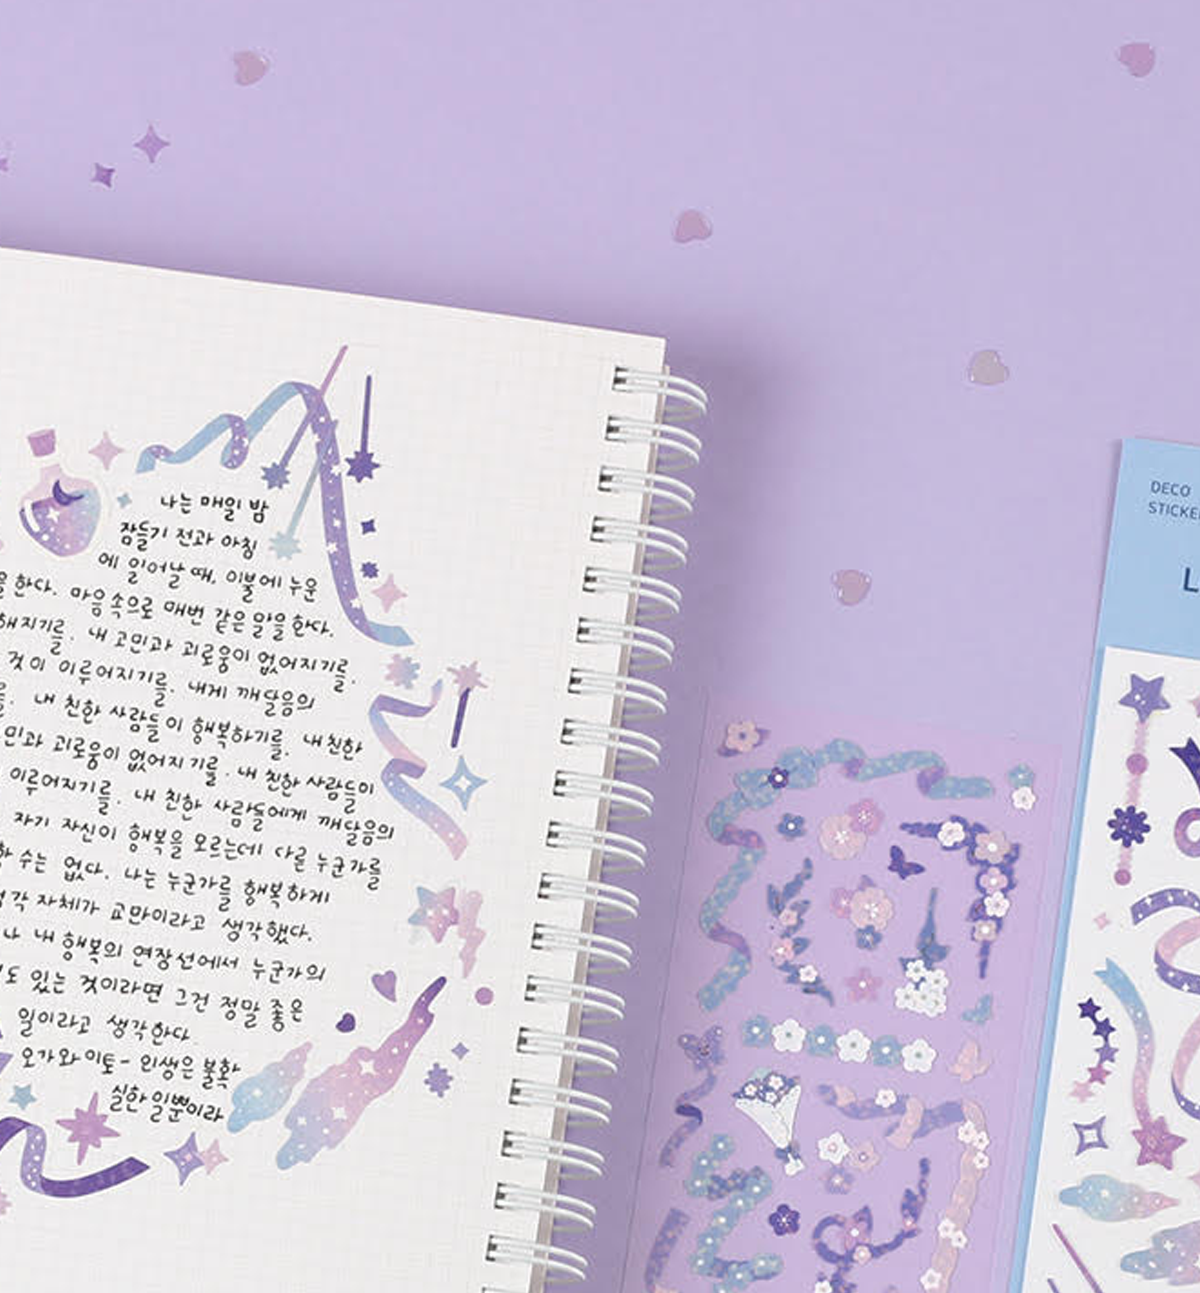 나는 매일 밤
잠들기 전과 아침
에 일어날 때, 이불에 누운
을 한다. 마음속으로 매번 같은 말을 한다.
해지기를. 내 고민과 괴로움이 없어지기를.
것이 이루어지기를. 내게 깨달음의
를. 내 친한 사람들이 행복하기를. 내 친한
민과 괴로움이 없어지기를. 내 친한 사람들이
이루어지기를. 내 친한 사람들에게 깨달음의
자기 자신이 행복을 모르는데 다른 누군가를
할 수는 없다. 나는 누군가를 행복하게
각 자체가 교만이라고 생각했다.
나 내 행복의 연장선에서 누군가의
도 있는 것이라면 그건 정말 좋은
일이라고 생각한다.
오가와 이토- 인생은 불확
실한 일뿐이라
DECO
STICKE
L